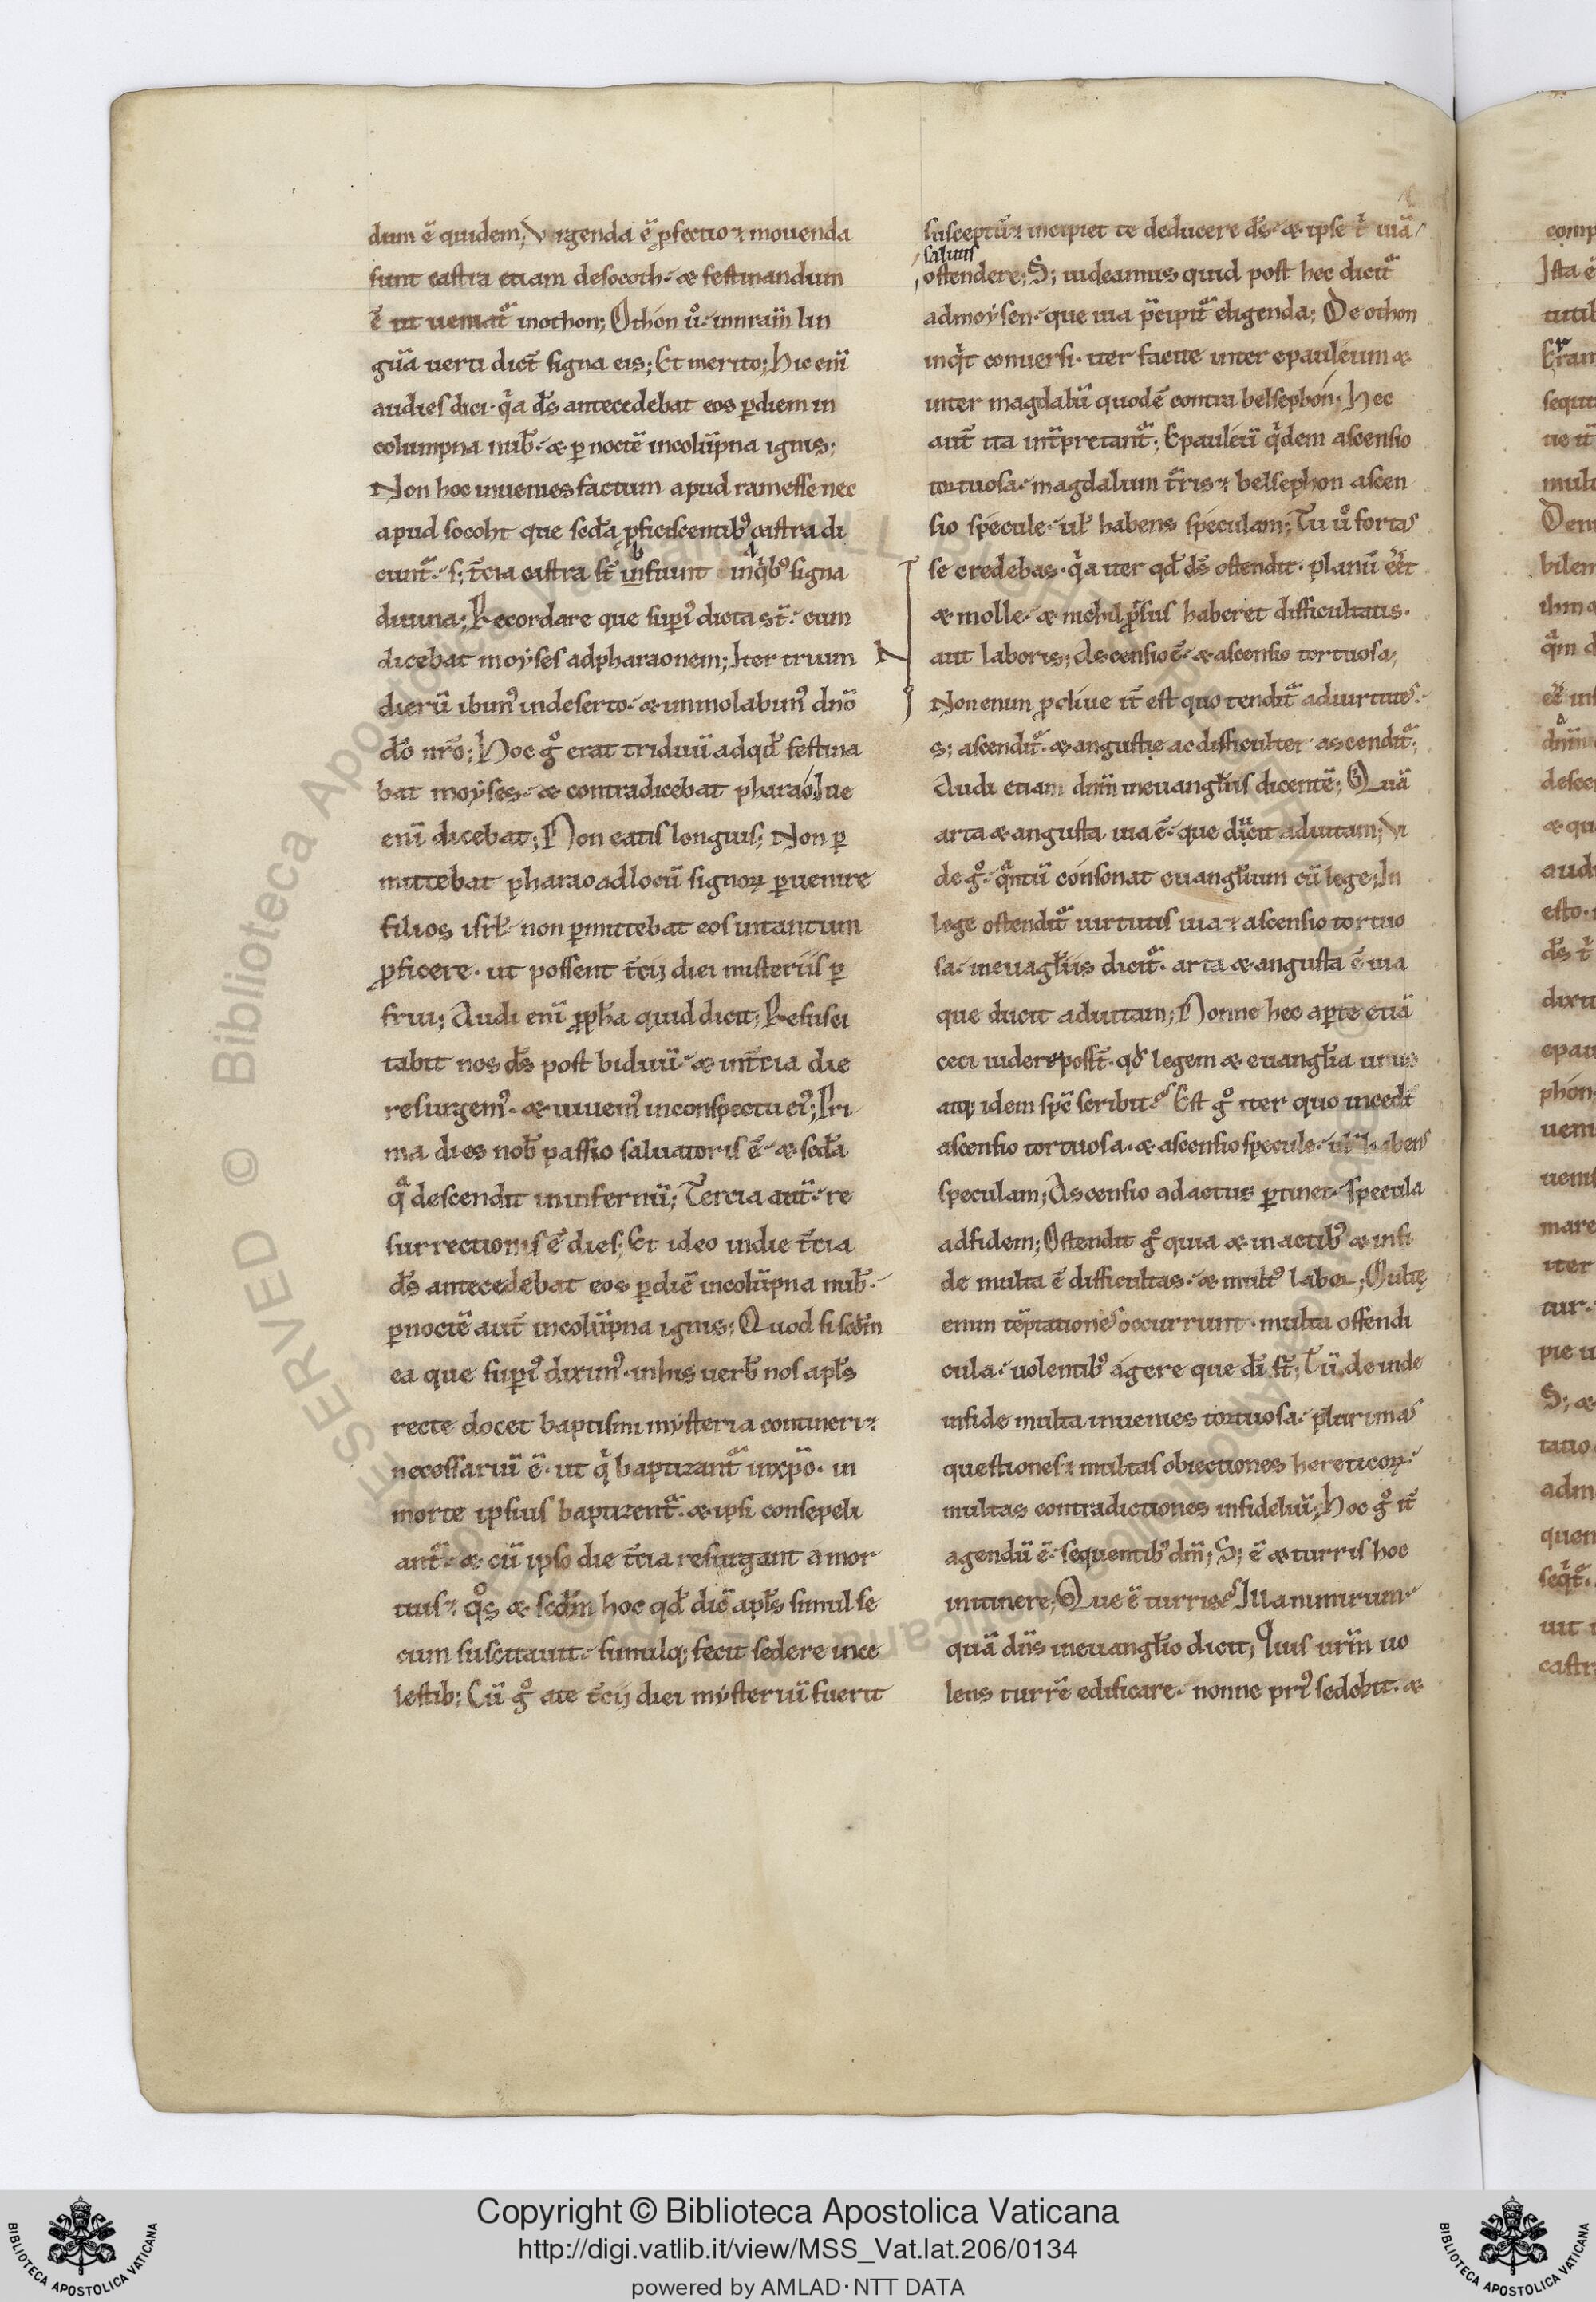 dum ē quidem; Vrgenda ē ꝓfectio ⁊ mouenda
sunt castra etiam desocoth · æ festinandum
ē ut ueniat᷑ inothon; Othon ů · innram̄ lin
guā uerti dict̄ signa eis; Et merito; hic enī
audies dici · qͥa ds̄ antecedebat eos ꝑdiem in
columpna nub̄ · æ ꝑ noctē incolūpna ignis;
Non hoc inuenies factum apud ramesse nec
apud socoht que scd̄a ꝓficiscentibꝰ castra di
cunt᷑ · s; t̄cia castra st̄ infuiunt inqͥbꝰ signa
diuina; Recordare que supiꝰ dicta st̄ · cum
dicebat moyses adpharaonem; Iter trium
dierū ibimꝰ indeserto · æ immolabimꝰ dn̄o
dō nr̄o; hoc gͦ erat triduū adqd̄ festina
bat moyses · æ contradicebat pharao; Ne
enī dicebat; Non eatis longius; Non ꝑ
mittebat pharao adlocū signoꝝ ꝑuenire
filios isrl̄ · non ꝑmittebat eos intantum
ꝓficere · ut possent t̄cij diei misteriis ꝑ
frui; Audi enī ꝓph̄a quid dicit; Resusci
tabit nos ds̄ post biduū · æ int̄cia die
resurgemꝰ · æ uiuemꝰ inconspectu eiꝰ; Pri
ma dies nob̄ passio saluatoris ē · æ scd̄a
qͣ descendit ininfernū; Tercia aut̄ · re
surrectionis ē dies; Et ideo indie t̄cia
ds̄ antecedebat eos ꝑdiē incolūpna nub̄ ·
ꝑnoctē aut̄ incolūpna ignis; Quod si scdm̄
ea que supiꝰ diximꝰ · inhis uerb̄ nos apls̄
recte docet baptismi mysteria contineri ⁊
necessariū ē · ut qͥ baptizant᷑ inxpō · in
morte ipsius baptizent᷑ · æ ipsi consepeli
ant᷑ · æ cū ipso die t̄cia resurgant a mor
tuis ⁊ qͦs æ scdm̄ hoc qd̄ dic̄ apls̄ simul se
cum suscitauit · simulq; fecit sedere ince
lestib; Cū gͦ a te t̄cij diei mysteriū fuerit
susceptū ⁊ incipiet te deducere ds̄ · æ ipse tͥ uiā
salutis
ostendere; S; uideamus quid post hec dicit᷑
admoysen · que uia p̄cipit᷑ eligenda; De othon
inqͥt conuersi · iter facite inter epauleum æ
inter magdalū quod ē contra belsephon; hec
aut̄ ita int̄pretant᷑; Epauleū qͥdem ascensio
tortuosa · magdalum t᷑ris ⁊ belsephon ascen
sio specule · ul̄ habens speculam; Tu ů fortas
se credebas · qͥa iter qd̄ ds̄ ostendit · planū eēt
æ molle · æ nichil ꝓrsus haberet difficultatis ·
aut laboris; Ascensio ē · æ ascensio tortuosa;
Non enim ꝓcliue it̄ est quo tendit᷑ aduirtutes ·
s; ascendit᷑ · æ angustię ac difficulter ascendit᷑;
Audi etiam dnm̄ ineuangl̄iis dicentē; Quā
arta æ angusta uia ē · que ducit aduitam; Vi
de gͦ · qͣntū consonat euangl̄ium cū lege; In
lege ostendit᷑ uirtutis uia ⁊ ascensio tortuo
sa · ineuagl̄iis dicit᷑ · arta æ angusta ē uia
que ducit aduitam; Nonne hec aꝑte etiā
ceci uidere posst̄ · qd̄ legem æ euangl̄ia unus
atq; idem spc̄ scribit? Est gͦ iter quo incedit᷑
ascensio tortuosa · æ ascensio specule · ul̄ habens
speculam; Ascensio ad actus ꝑtinet · specula
adfidem; Ostendit gͦ quia æ in actibꝰ æ infi
de multa ē difficultas · æ multꝰ labor; Multę
enim tēptationes occurrunt · multa offendi
cula · uolentibꝰ agere que dī st̄; Tū deinde
infide multa inuenies tortuosa · plurimas
questiones ⁊ multas obiectiones hereticoꝝ ·
multas contradictiones infideliū; hoc gͦ it̄
agendū ē · sequentibꝰ dm̄; S; ē æ turris hoc
initinere; Que ē turris? Illa nimirum ·
quā dns̄ ineuangl̄io dicit; Quis urm̄ uo
lens turrē edificare · nonne priꝰ sedebit · æ
Copyright © Biblioteca Apostolica Vaticana
http://digi.vatlib.it/view/MSS_Vat.lat.206/0134
powered by AMLAD·NTT DATA